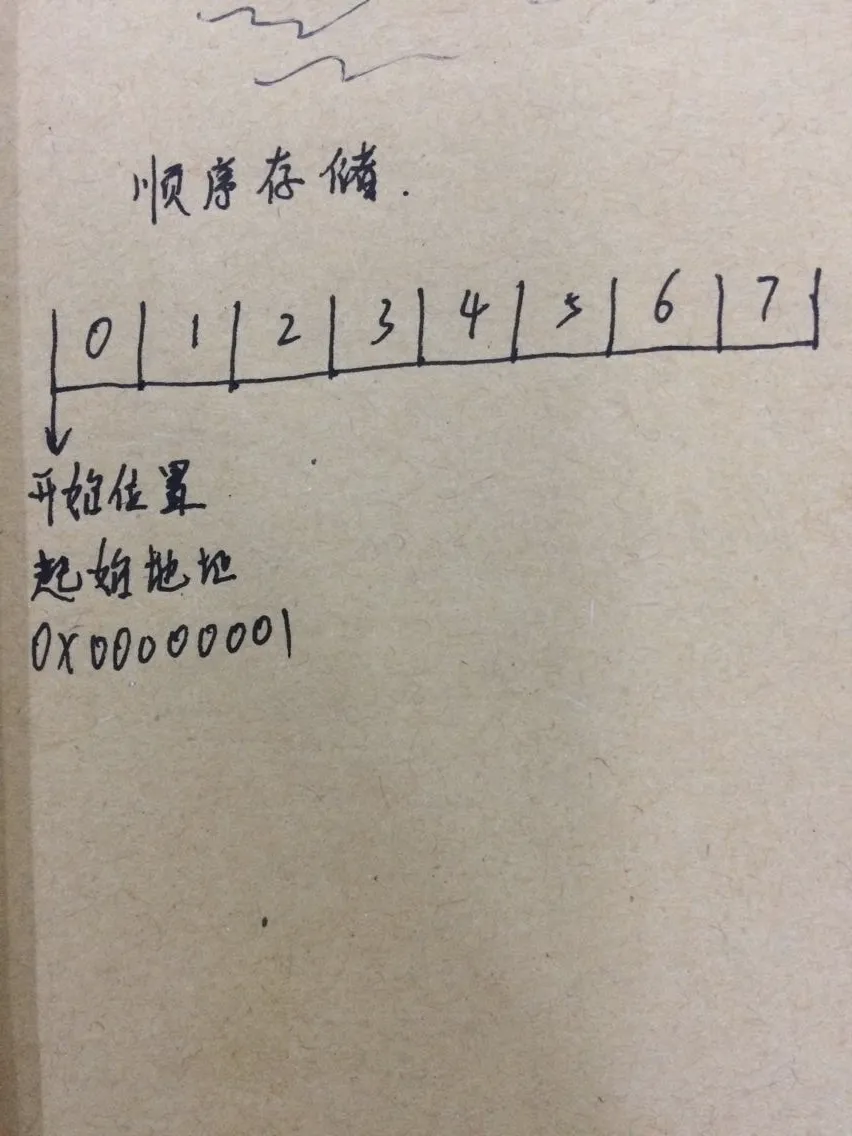 顺序存储.
0 1 2 3 4 5 6 7
开始位置
起始地址
0X00000001